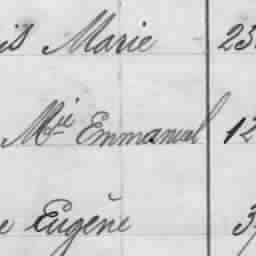 is Marie 23
Mie Emmanuel 12
e Eugêne 3